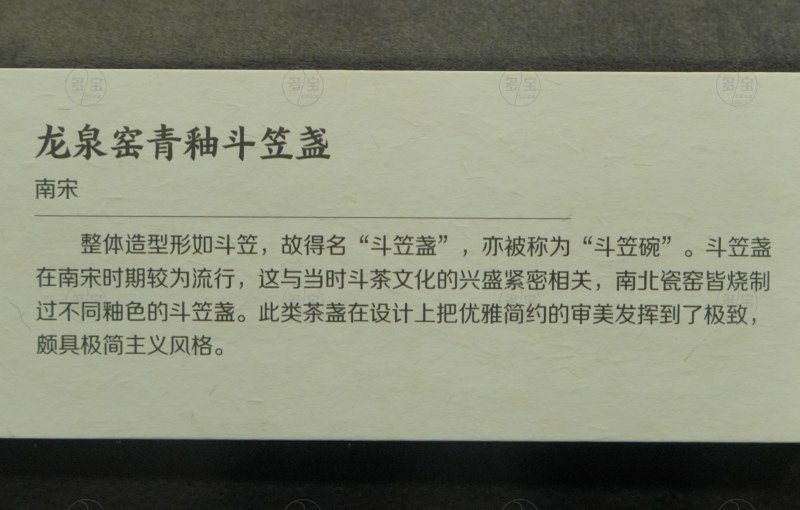 龙泉窑青釉斗笠盏
南宋
整体造型形如斗笠，故得名“斗笠盏”，亦被称为“斗笠碗”。斗笠盏
在南宋时期较为流行，这与当时斗茶文化的兴盛紧密相关，南北瓷窑皆烧制
过不同釉色的斗笠盏。此类茶盏在设计上把优雅简约的审美发挥到了极致，
颇具极简主义风格。